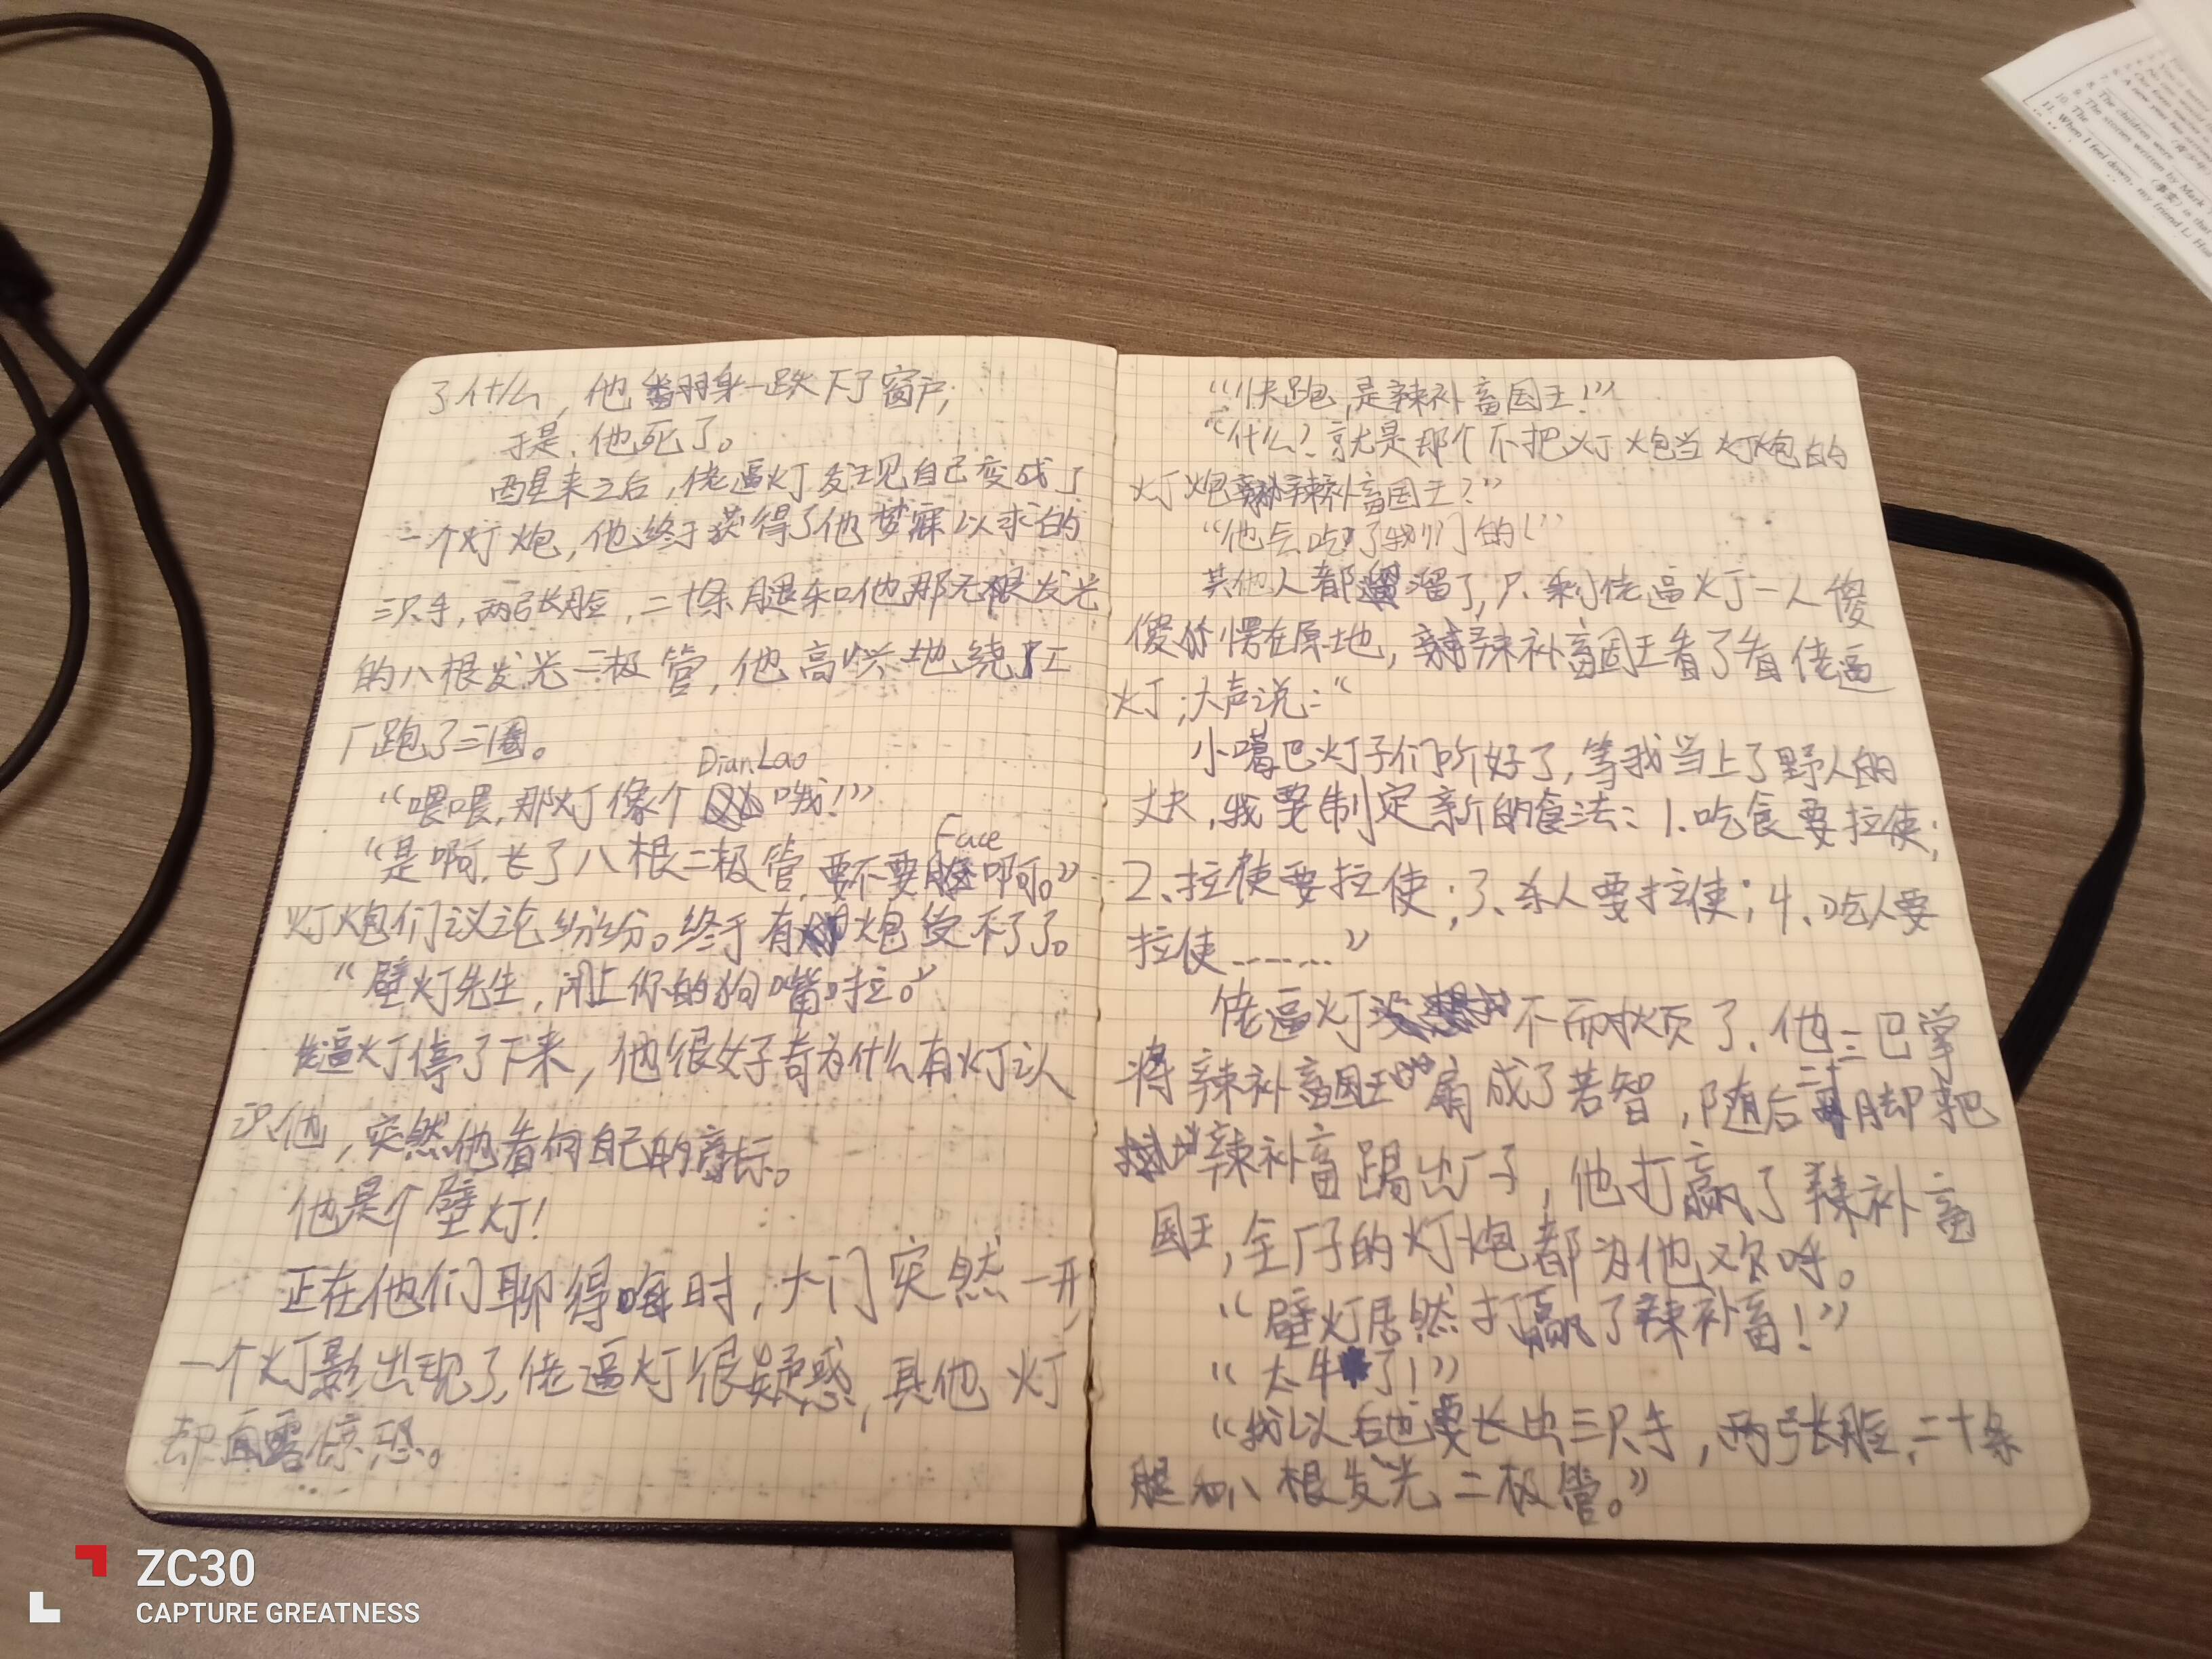 了什么，他翻身一跌下了窗户，
于是，他死了。
醒来之后，佬逼灯发现自己变成了
一个灯炮，他终于获得了他梦寐以求的
三只手，两张脸，二十条腿和他那无根发光
的八根发光二极管，他高兴地绕了工
厂跑了三圈。
DianLao
“喂喂，那灯像个哦！”
Face
“是啊，长了八根二极管，要不要啊。”
灯炮们议论纷纷。终于有炮受不了了。
“壁灯先生，闭上你的狗嘴啦。”
佬逼灯停了下来，他很好奇为什么有灯认
识他，突然他看向自己的商标。
他是个壁灯！
正在他们聊得嗨时，大门突然一开，
一个灯影出现了，佬逼灯很疑惑，其他灯
却面露惊恐。
“快跑，是辣补畜国王！”
“什么？就是那个不把灯炮当灯炮的
灯炮辣补畜国王？”
“他会吃了我们的！”
其他人都溜了，只剩佬逼灯一人傻
傻的愣在原地，辣补畜国王看了看佬逼
灯，大声说：“
小噶巴灯子们听好了，等我当上了野人的
丈夫，我要制定新的食法：1、吃食要拉使；
2、拉使要拉使；3、杀人要拉使；4、吃人要
拉使……”
佬逼灯不耐烦了，他三巴掌
将辣补畜国王扇成了若智，随后二十脚把
辣补畜踢出厂子，他打赢了辣补畜
国王，全厂子的灯炮都为他欢呼。
“壁灯居然打赢了辣补畜！”
“太牛了！”
“我以后也要长出三只手，两张脸，二十条
腿和八根发光二极管。”
8. The children were
9. The stories written by Mark
10. The
11. When I feel down, my friend Li Hua
ZC30
CAPTURE GREATNESS